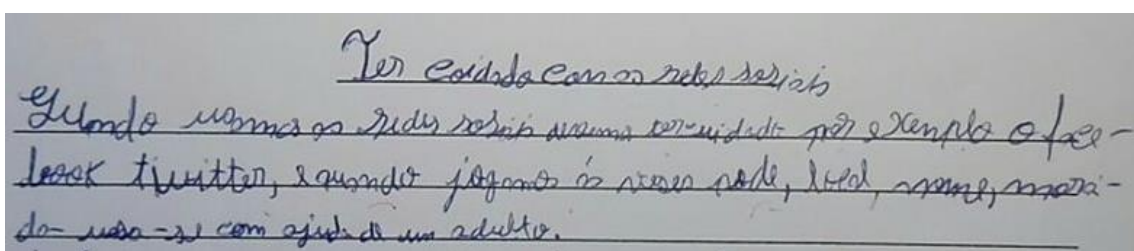 Ter coidado com as redes sosiais
Quando usamos as redes sosiais devemos ter cuidado por exemplo o face-
boook twitter, e quando jogamos ás vezes pede, nome, mora-
da usa-se com ajuda de um adulto.